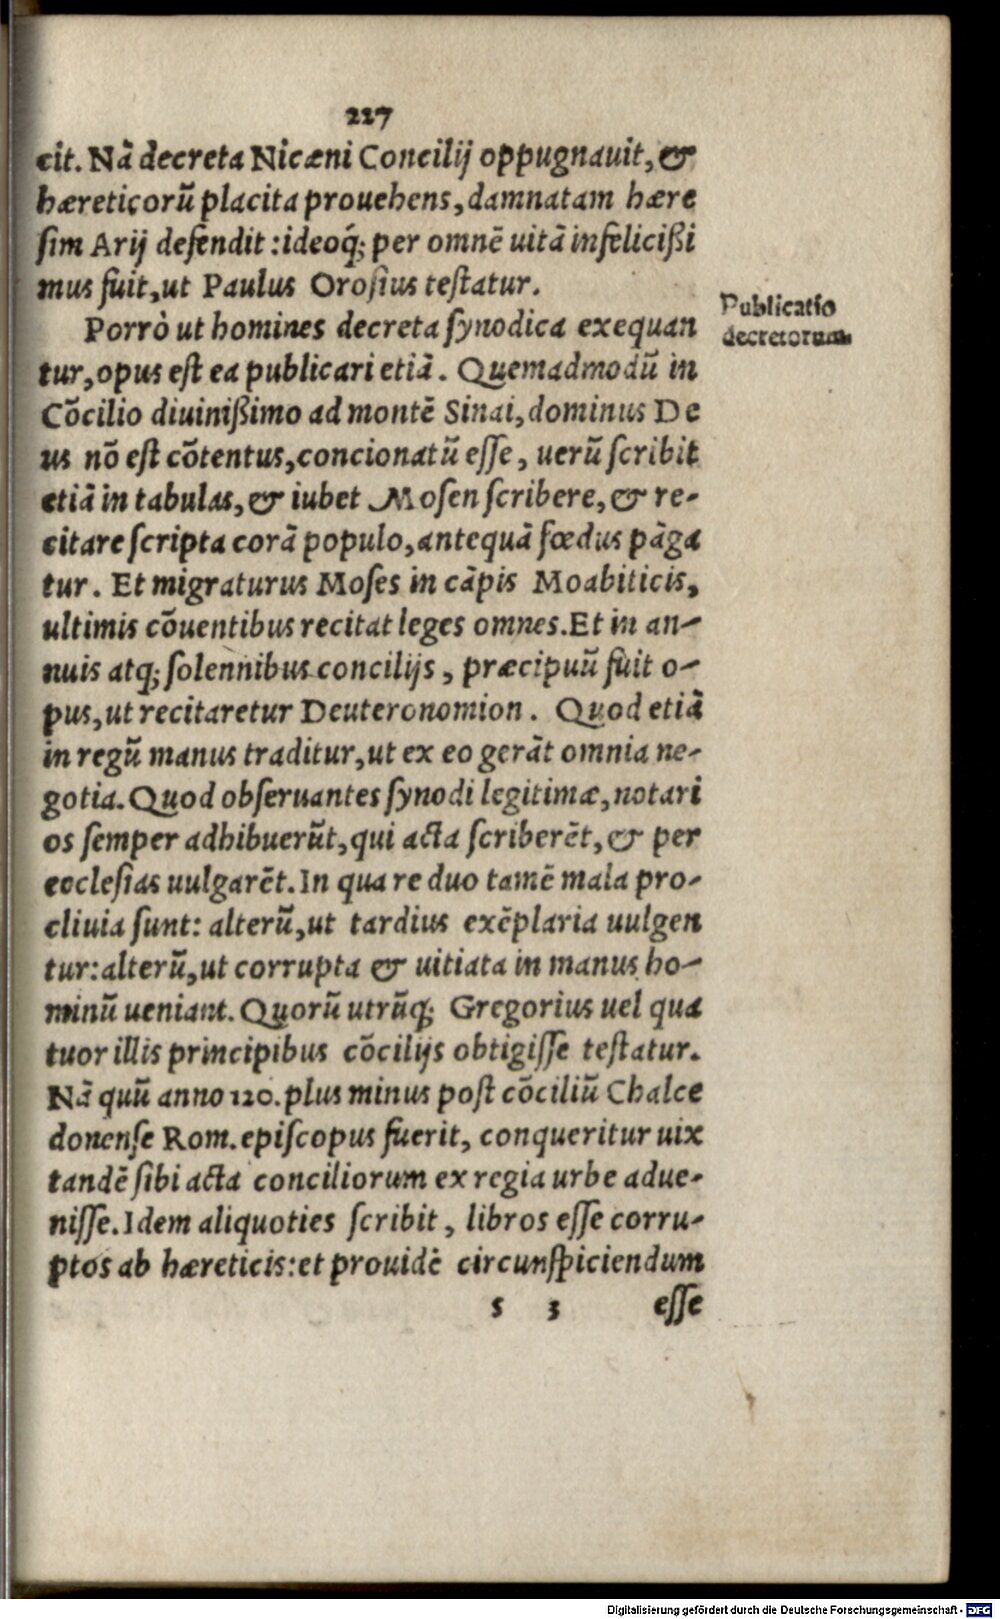 227
cit. Nã decreta Nicæni Concilij oppugnauit, &
hæreticorũ placita prouehens, damnatam hære
sim Arij defendit: ideoq́; per omnẽ uitã infelicißi
mus fuit, ut Paulus Orosius testatur.
Porrò ut homines decreta synodica exequan
tur, opus est ea publicari etiã. Quemadmodũ in
Cõcilio diuinißimo ad montẽ Sinai, dominus De
us nõ est cõtentus, concionatũ esse, uerũ scribit
etiã in tabulas, & iubet Mosen scribere, & re-
citare scripta corã populo, antequã fœdus pãga
tur. Et migraturus Moses in cãpis Moabiticis,
ultimis cõuentibus recitat leges omnes. Et in an-
nuis atq; solennibus concilijs, præcipuũ fuit o-
pus, ut recitaretur Deuteronomion. Quod etiã
in regũ manus traditur, ut ex eo gerãt omnia ne-
gotia. Quod obseruantes synodi legitimæ, notari
os semper adhibuerũt, qui acta scriberẽt, & per
ecclesias uulgarẽt. In qua re duo tamẽ mala pro-
cliuia sunt: alterũ, ut tardius exẽplaria uulgen
tur: alterũ, ut corrupta & uitiata in manus ho-
minũ ueniant. Quorũ utrũq; Gregorius uel qua
tuor illis principibus cõcilijs obtigisse testatur.
Nã quũ anno 120. plus minus post cõciliũ Chalce
donense Rom. episcopus fuerit, conqueritur uix
tandẽ sibi acta conciliorum ex regia urbe adue-
nisse. Idem aliquoties scribit, libros esse corru-
ptos ab hæreticis: et prouidè circunspiciendum
s 3 esse
Publicatio
decretorum
Digitalisierung gefördert durch die Deutsche Forschungsgemeinschaft - DFG